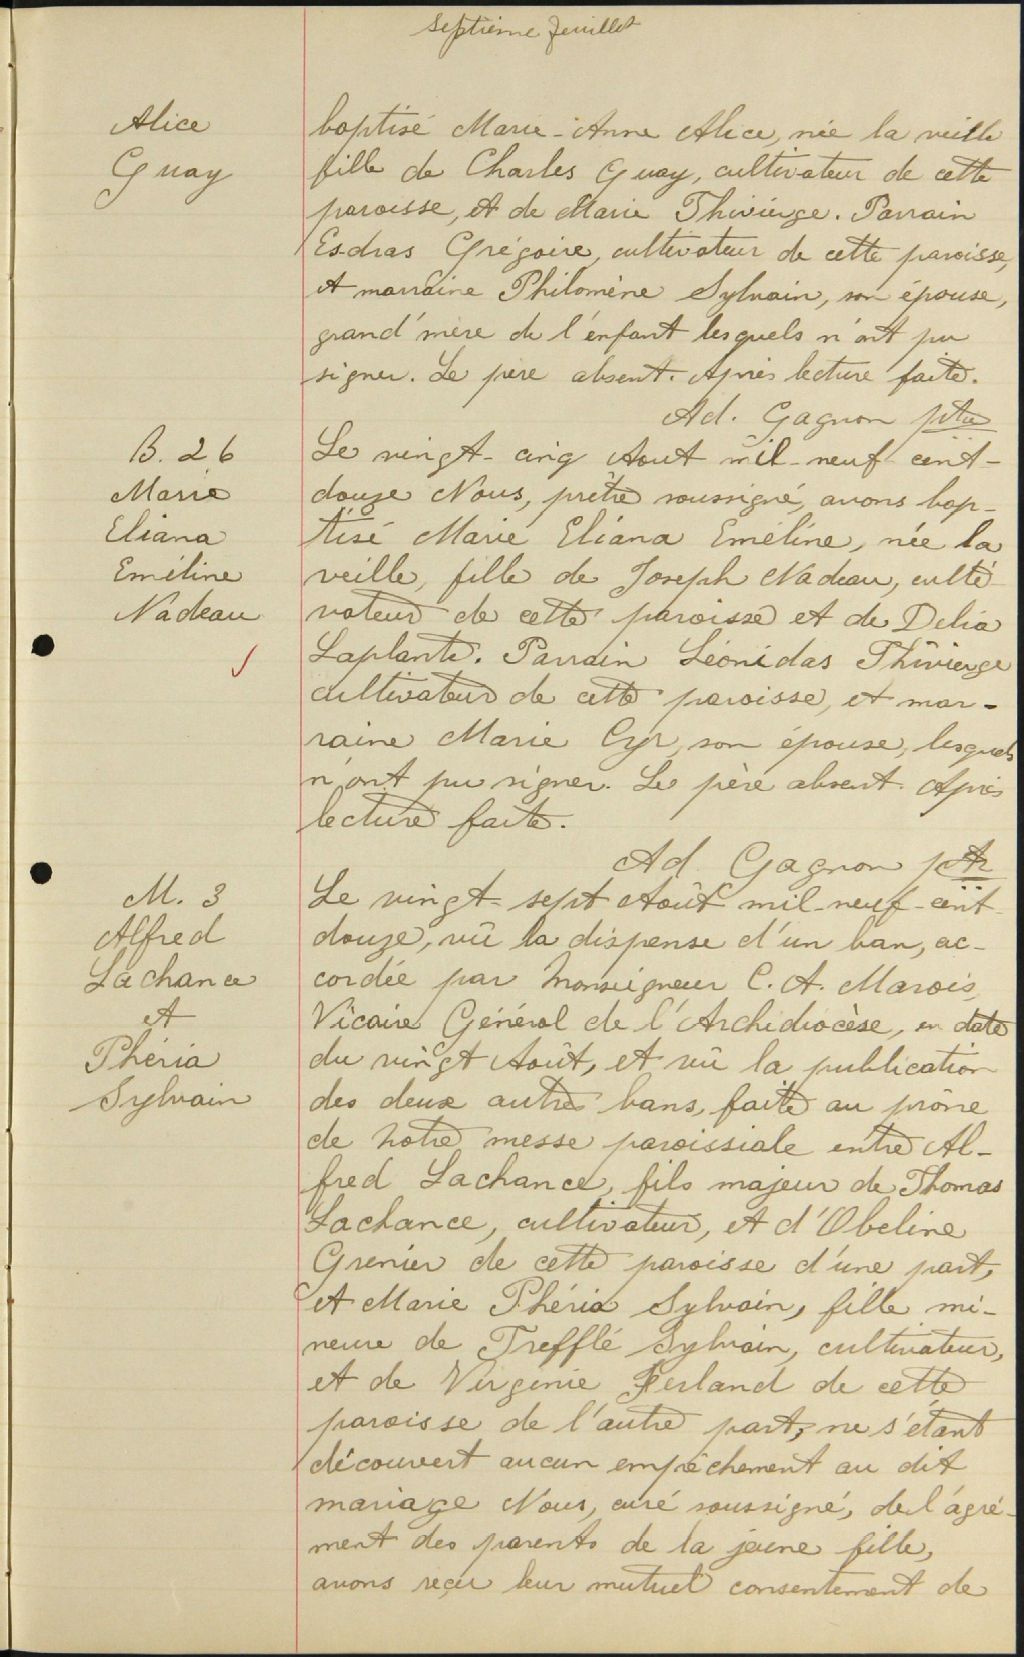 Septième feuillet
Alice
Guay
baptisé Marie-Anne Alice, née la veille
fille de Charles Guay, cultivateur de cette
paroisse, et de Marie Thivièrge. Parrain
Esdras Grégoire, cultivateur de cette paroisse,
et marraine Philomène Sylvain, son épouse,
grand'mère de l'enfant lesquels n'ont pu
signer. Le père absent. Après lecture faite.
Ad. Gagnon ptre
B. 26
Marie
Eliana
Eméline
Nadeau
Le vingt-cinq Aout mil-neuf-cent-
douze Nous, prêtre soussigné, avons bap-
tisé Marie Eliana Eméline, née la
veille, fille de Joseph Nadeau, culti-
vateur de cette paroisse et de Delia
Laplante. Parrain Léonidas Thivierge
cultivateur de cette paroisse, et mar-
raine Marie Cyr, son épouse, lesquels
n'ont pu signer. Le père absent. Après
lecture faite.
Ad Gagnon ptr
M. 3
Alfred
Lachance
et
Phéria
Sylvain
Le vingt-sept Août mil-neuf-cent-
douze, vû la dispense d'un ban, ac-
cordée par Monseigneur C. A. Marois,
Vicaire Général de l'Archidiocèse, en date
du vingt Août, et vû la publication
des deux autres bans, faite au prône
de notre messe paroissiale entre Al-
fred Lachance, fils majeur de Thomas
Lachance, cultivateur, et d'Obeline
Grenier de cette paroisse d'une part,
et Marie Phéria Sylvain, fille mi-
neure de Trefflé Sylvain, cultivateur,
et de Virginie Ferland de cette
paroisse de l'autre part, ne s'étant
découvert aucun empêchement au dit
mariage Nous, curé soussigné, de l'agré-
ment des parents de la jeune fille,
avons reçu leur mutuel consentement de